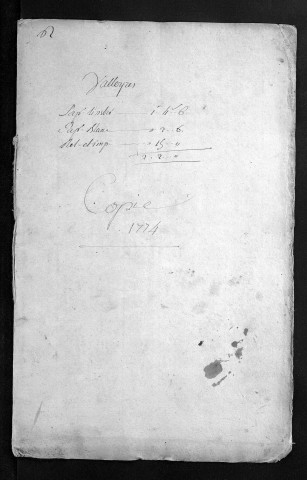 Valleyres
Pap. timbré — 1 " 4 " 6 "
Pap. Blanc — " 2 " 6
Rel. et imp. — " 15 " "
2 " 2 " "
Copie
1774